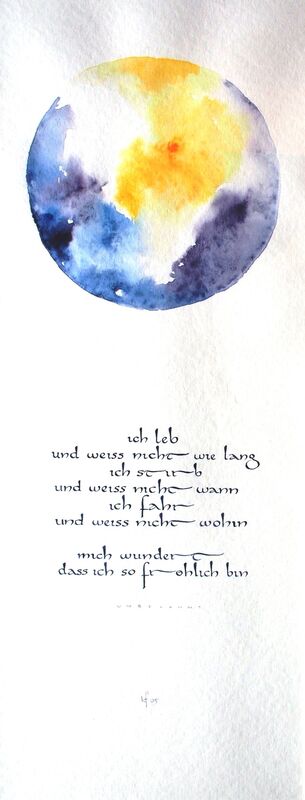 ich leb
und weiss nicht wie lang
ich stirb
und weiss nicht wann
ich fahr
und weiss nicht wohin
mich wundert
dass ich so fröhlich bin
unbekannt